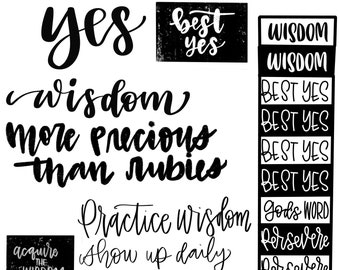 yes
best
yes
wisdom
more precious
than rubies
Practice wisdom
show up daily
acquire
THE
WISDOM
WISDOM
WISDOM
BEST YES
BEST YES
BEST YES
BEST YES
God's WORD
Persevere
Persevere